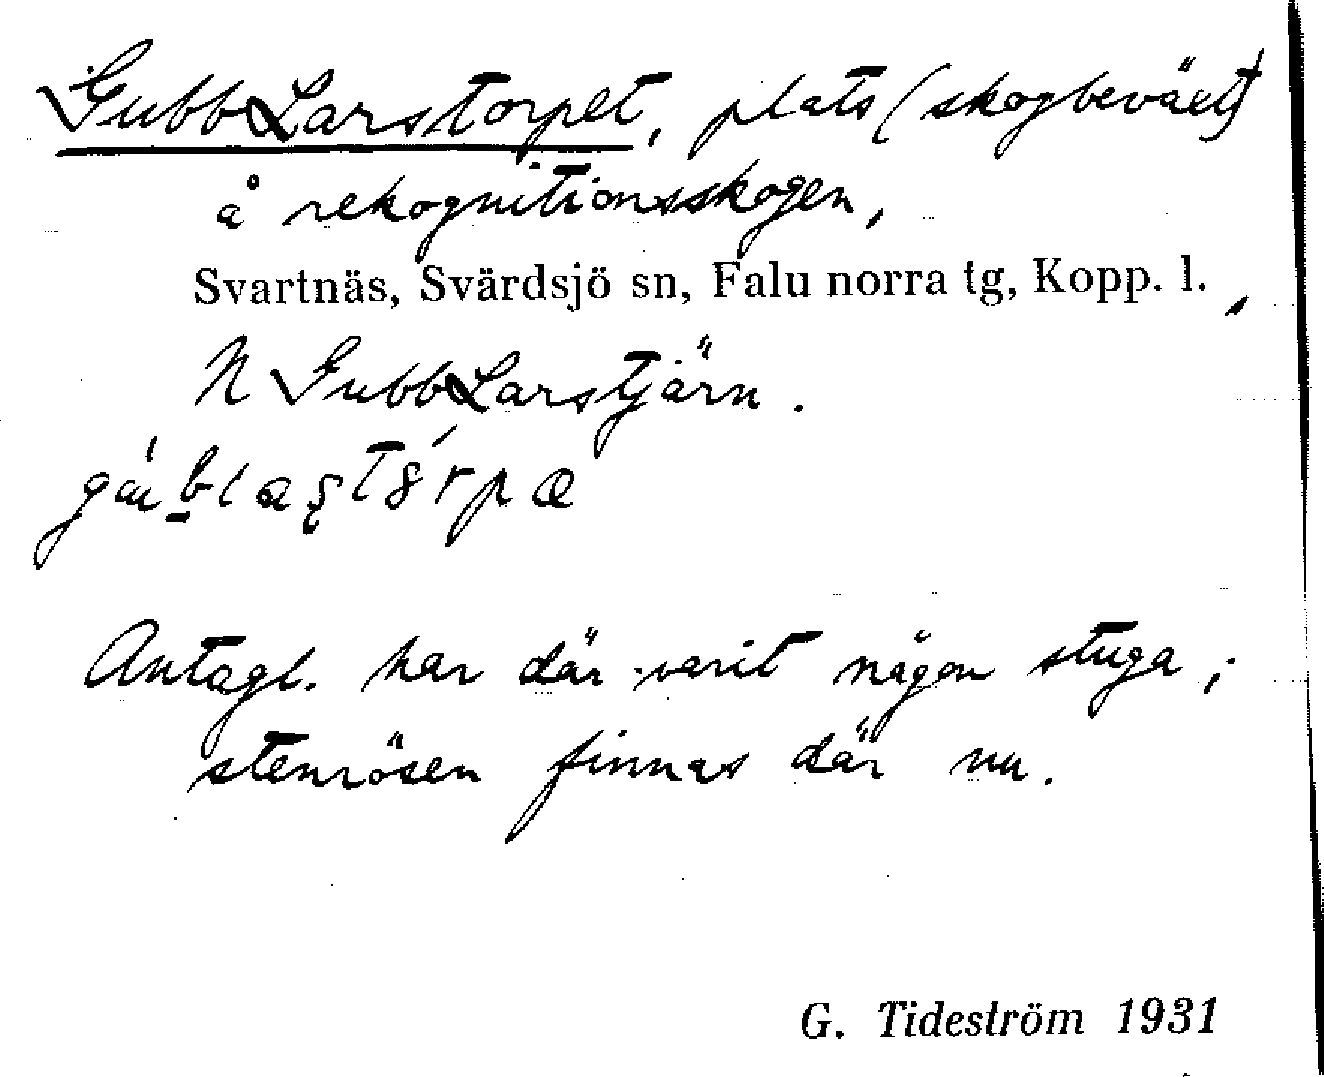 GubbLarstorpet, plats (skogbeväxt)
å rekognitionsskogen,
Svartnäs, Svärdsjö sn, Falu norra tg, Kopp. l.,
N GubbLarstjärn.
Antagl. har där varit någon stuga;
stenrösen finnas där nu.
G. Tideström 1931